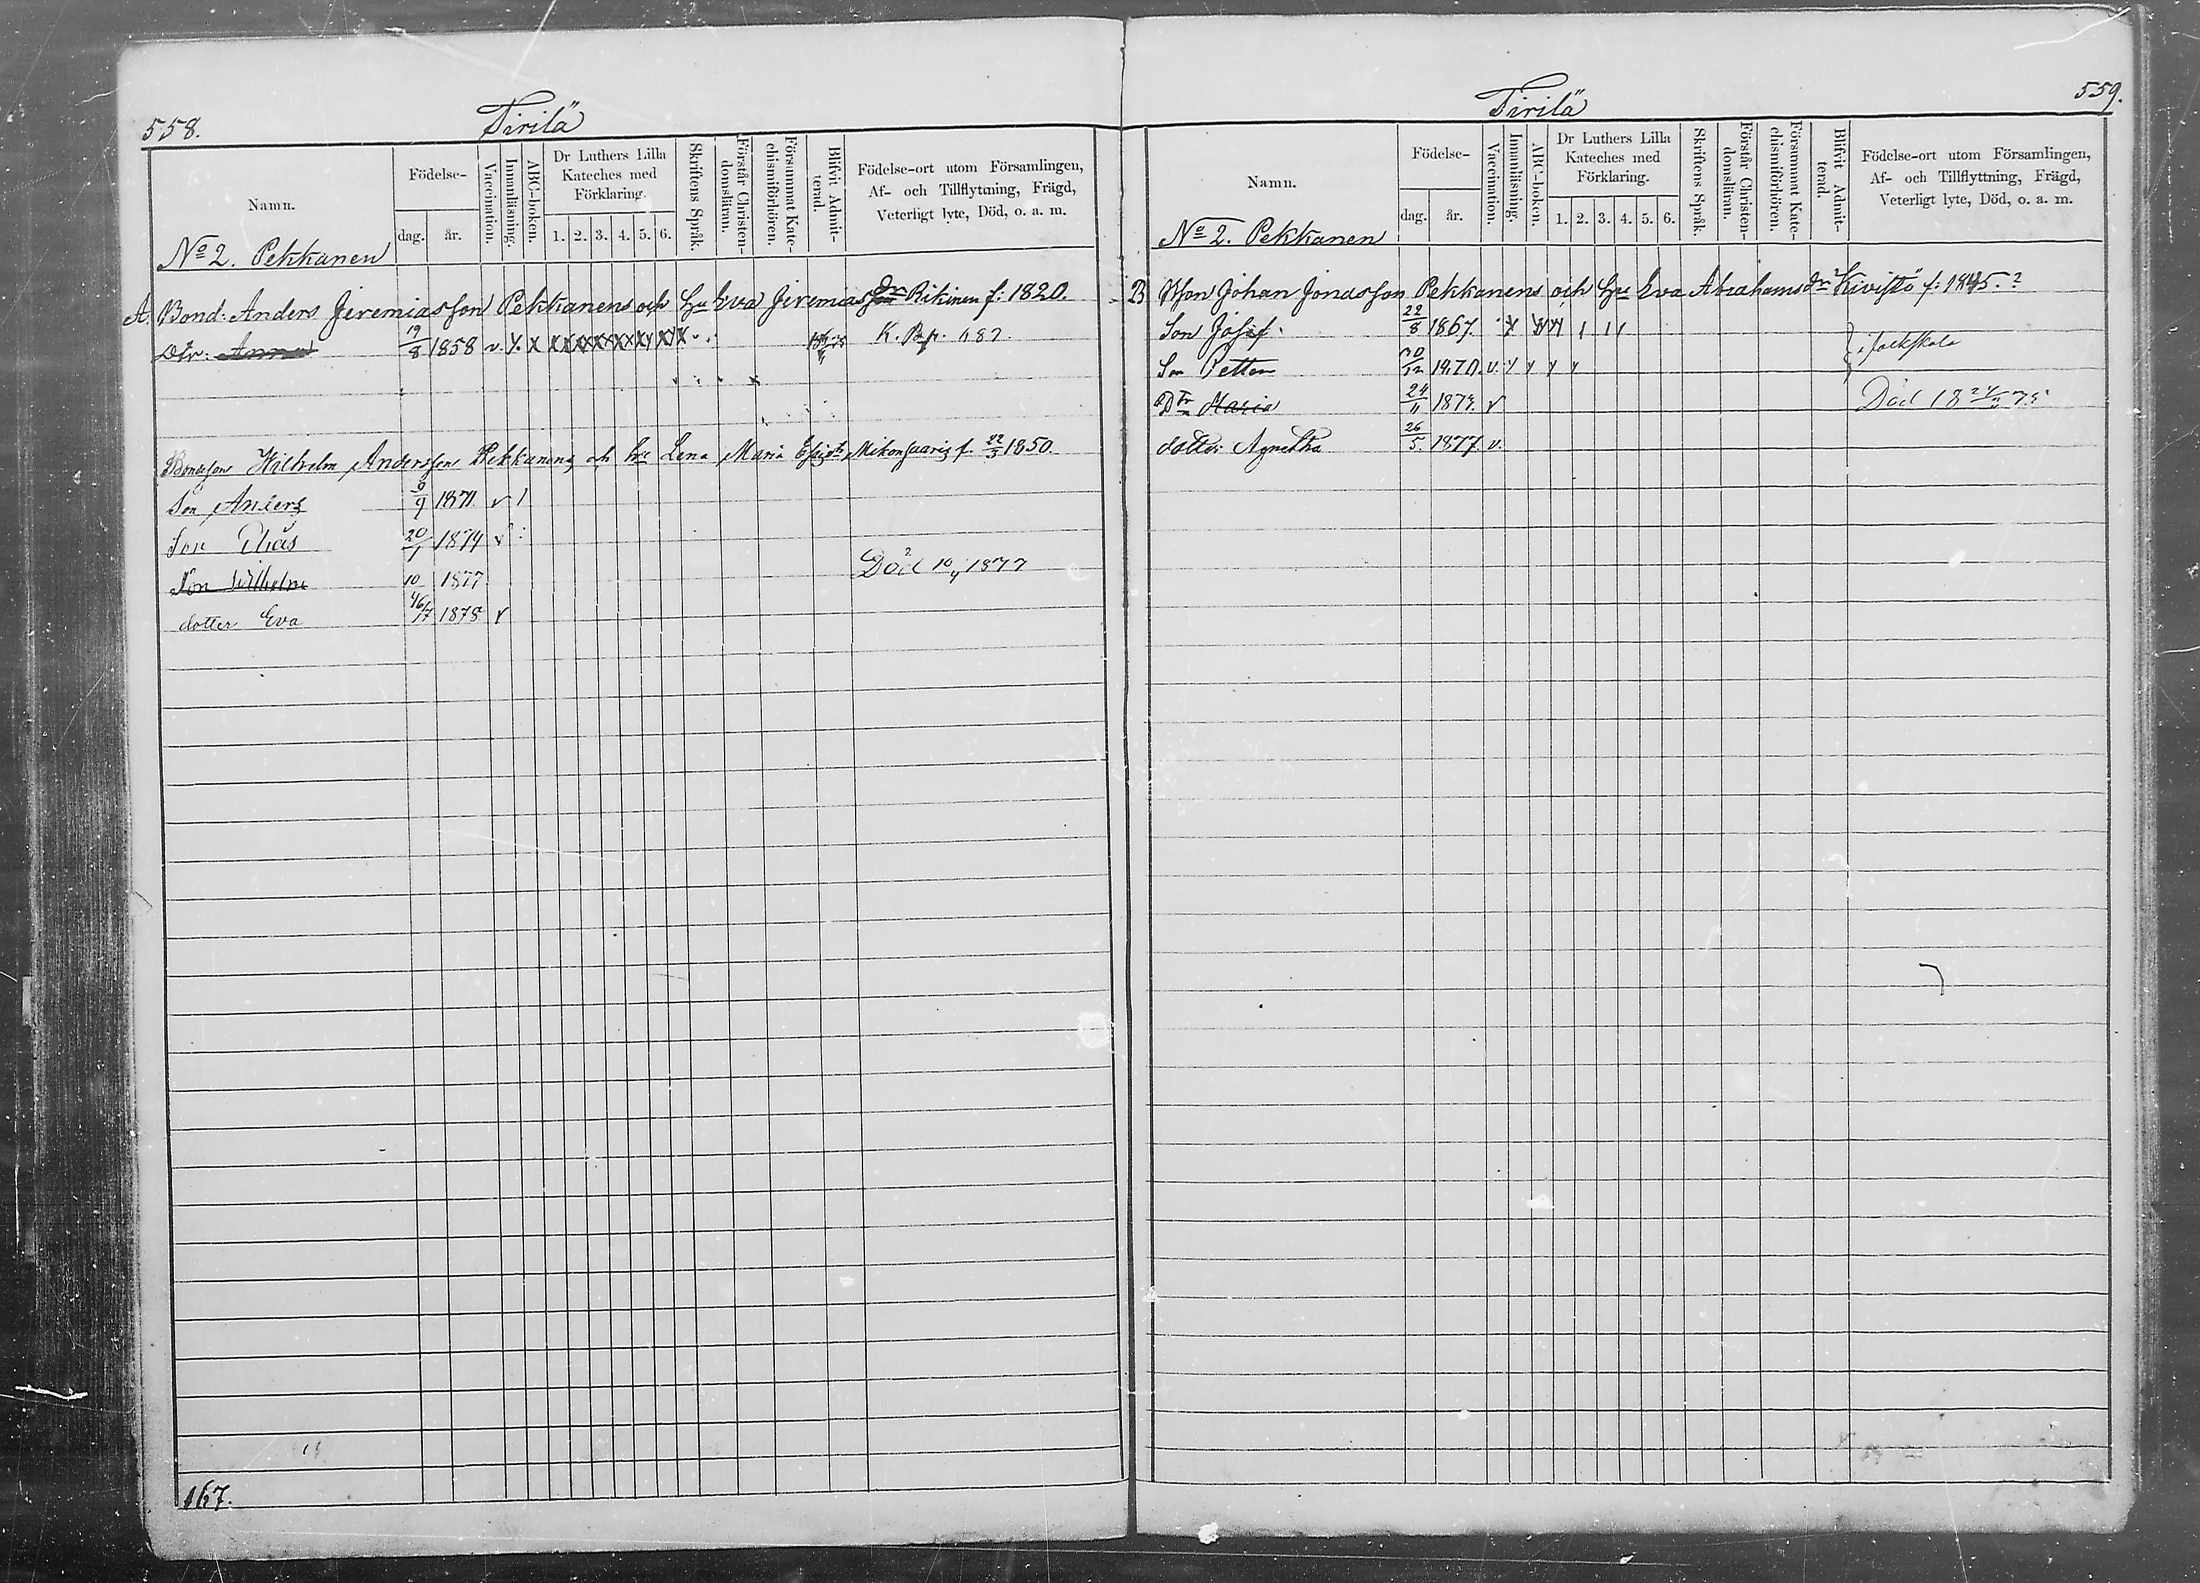 558.
Tirilä
Namn.
Födelse-
dag.
år.
Vaccination.
Innanläsning.
ABC-boken.
Dr Luthers Lilla
Kateches med
Förklaring.
1. 2. 3. 4. 5. 6.
Skriftens Språk.
Förstår Christen-
domsläran.
Försummat Kate-
chismiförhören.
Blifvit Admit-
terad.
Födelse-ort utom Församlingen,
Af- och Tillflyttning, Frägd,
Veterligt lyte, Död, o. a. m.
No 2. Pekkanen
A. Bond: Anders Jeremiasson Pekkanens och Hu Eva Jeremias Dr Rikinen f: 1820.
Dtr: Anna 19/8 1858 v. K. Br. 487.
Bondeson Wilhelm Andersson Pekkanens och Hu Lena Maria f. 22/3 1850.
Son Anders 9/9 1871 v
Son Elias 20/1 1874 v
Son Wilhelm 10 1877 Död 10/4 1877
dotter Eva 1878 v
167.
559.
Tirilä
Namn.
Födelse-
dag.
år.
Vaccination.
Innanläsning.
ABC-boken.
Dr Luthers Lilla
Kateches med
Förklaring.
1. 2. 3. 4. 5. 6.
Skriftens Språk.
Förstår Christen-
domsläran.
Försummat Kate-
chismiförhören.
Blifvit Admit-
terad.
Födelse-ort utom Församlingen,
Af- och Tillflyttning, Frägd,
Veterligt lyte, Död, o. a. m.
No 2. Pekkanen
B Johan Jonasson Pekkanens och Hu Eva Abrahams dr Kivistö f: 1845.?
Son Josef. 22/8 1867.
Son Petter 1870. v. i folkskola
Dtr Maria 24/11 1873. v Död 18 75
dotter Agnetha 26/5. 1877. v.